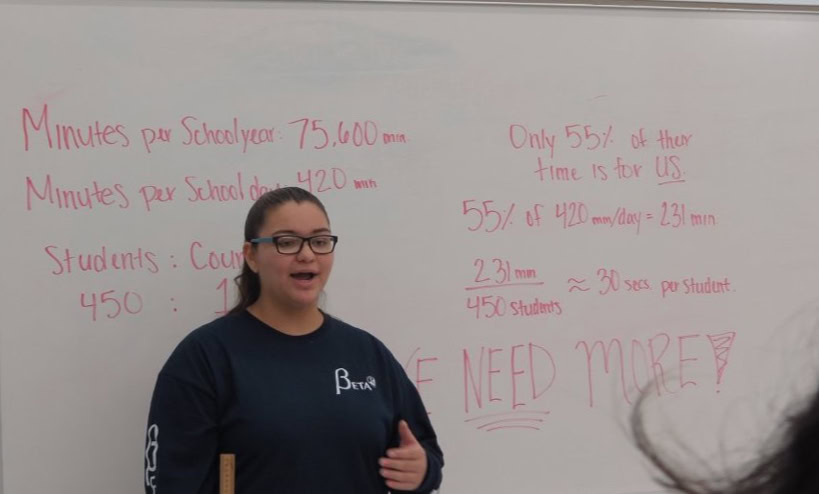 Minutes per Schoolyear: 75,600 min.
Minutes per School day 420 min
Students : Coun
450 : 1
Only 55% of their
time is for US.
55% of 420 min/day = 231 min
231 min
450 students
≈ 30 secs. per student.
WE NEED MORE!
BETA